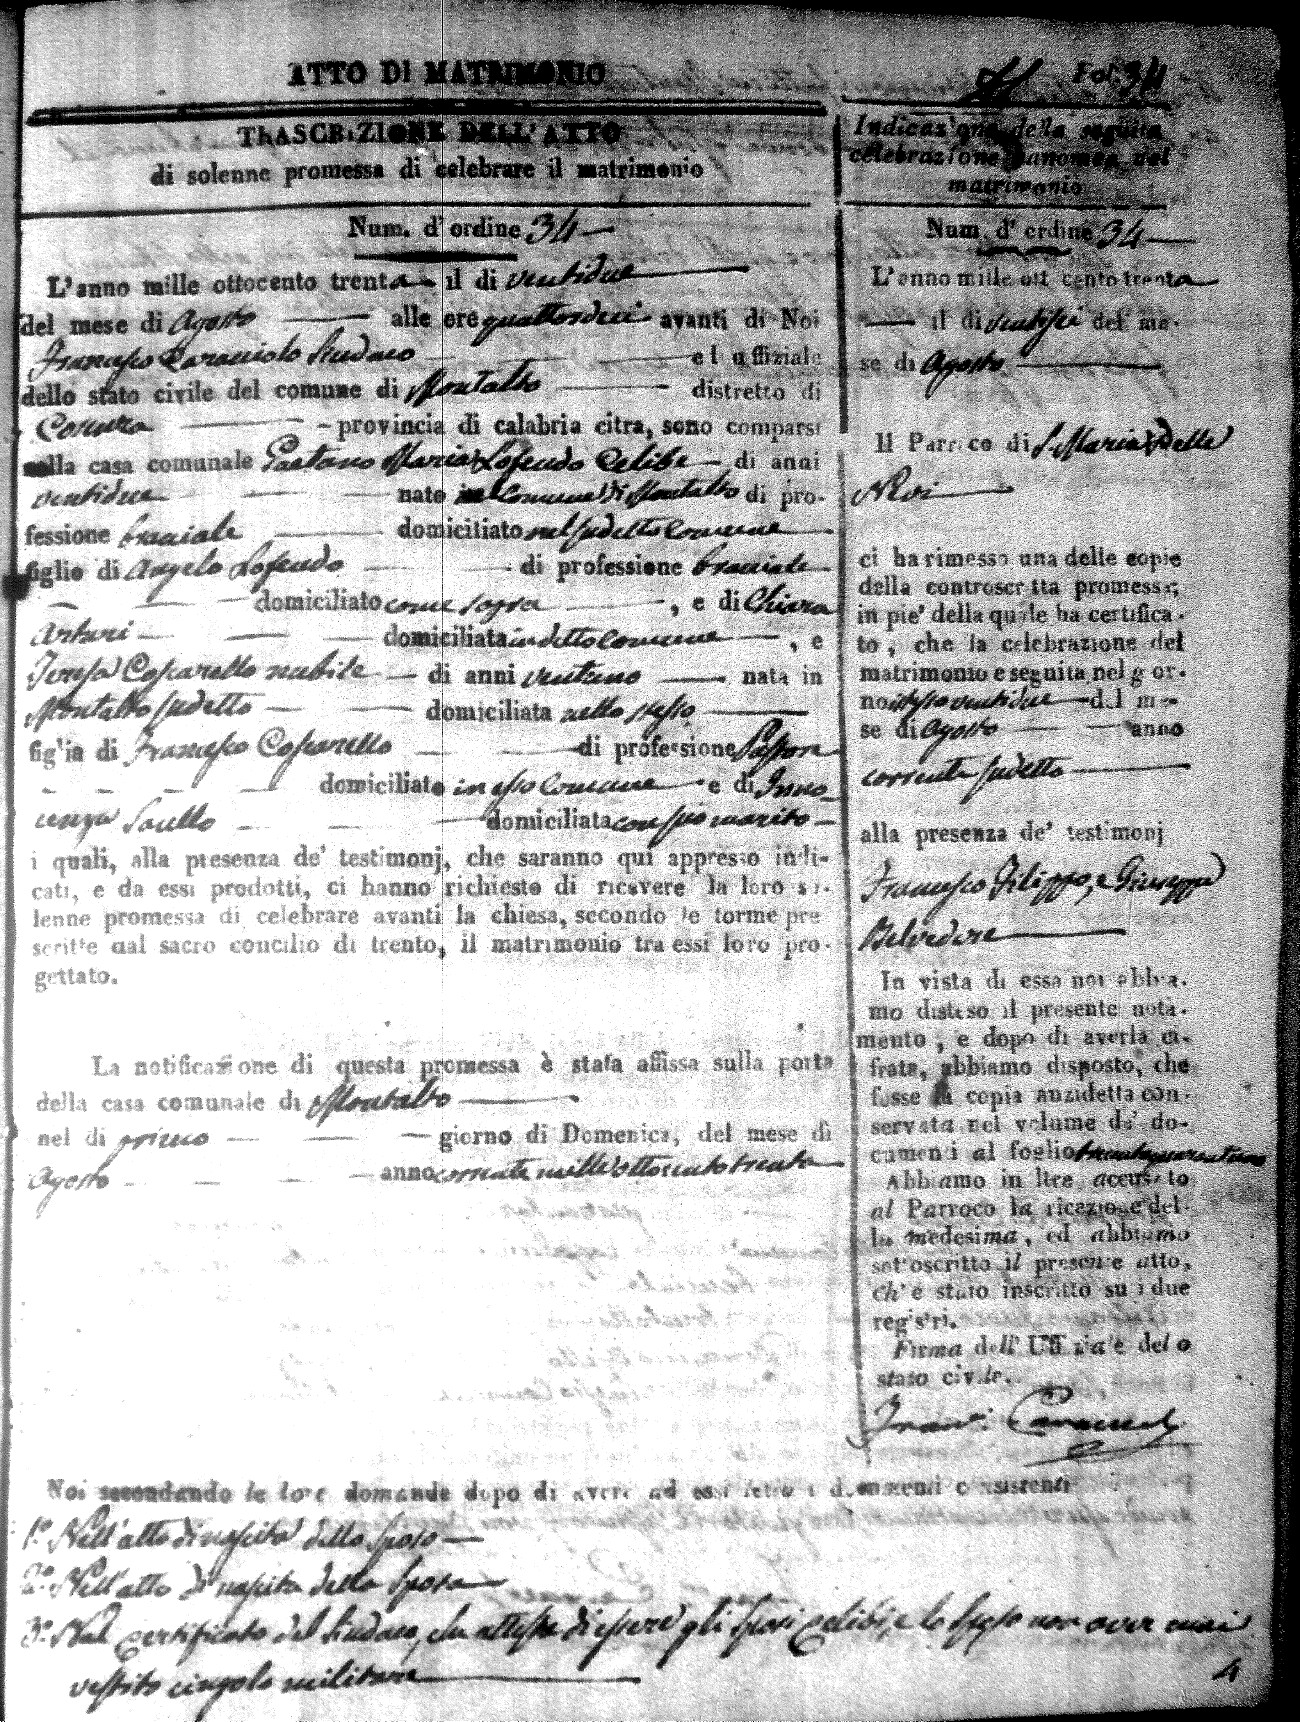 ATTO DI MATRIMONIO
Fol. 34
TRASCRIZIONE DELL'ATTO
di solenne promessa di celebrare il matrimonio
Num. d'ordine 34
L'anno mille ottocento trenta il di ventidue
del mese di Agosto alle ore quattordeci avanti di Noi
Francesco Caracciolo Sindaco ed uffiziale
dello stato civile del comune di Montalto distretto di
Cosenza provincia di calabria citra, sono comparsi
nella casa comunale Gaetano Maria Lofeudo Celibe di anni
ventidue nato in Comune di Montalto di pro-
fessione bracciale domiciliato nel sudetto Comune
figlio di Angelo Lofeudo di professione bracciale
domiciliato come sopra, e di Chiara
Arturi domiciliata in detto Comune, e
Teresa Coscarello nubile di anni ventuno nata in
Montalto sudetto domiciliata nello stesso
figlia di Francesco Coscarello di professione Pastore
domiciliato in esso Comune e di Inno-
cenza Saullo domiciliata con suo marito
i quali, alla presenza de' testimonj, che saranno qui appresso indi-
cati, e da essi prodotti, ci hanno richiesto di ricevere la loro so-
lenne promessa di celebrare avanti la chiesa, secondo le forme pre
scritte dal sacro concilio di trento, il matrimonio tra essi loro pro-
gettato.
La notificazione di questa promessa è stata affissa sulla porta
della casa comunale di Montalto
nel di primo giorno di Domenica, del mese di
Agosto anno corrente mille ottocento trenta
Indicazione della seguita
celebrazione canonica del
matrimonio
Num. d'ordine 34
L'anno mille ottocento trenta
il di ventisei del me-
se di Agosto
Il Parroco di S. Maria della
Novi
ci ha rimesso una delle copie
della controscritta promessa,
in pie' della quale ha certifica-
to, che la celebrazione del
matrimonio e seguita nel gior-
no stesso ventidue del me-
se di Agosto anno
corrente sudetto
alla presenza de' testimonj
Francesco Filippo, e Giuseppe
Belvedere
In vista di essa noi abbia-
mo disteso il presente nota-
mento, e dopo di averla ci-
frata, abbiamo disposto, che
fosse la copia anzidetta con-
servata nel volume de' do-
cumenti al foglio
Abbiamo in ltre accusato
al Parroco la ricezione del-
la medesima, ed abbiamo
sottoscritto il presente atto,
ch'è stato inscritto su i due
registri.
Firma dell' Uffiziale dello
stato civile.
Noi secondando le loro domande dopo di avere ad essi letto i documenti consistenti
1º. Nell'atto di nascita dello sposo
2º. Nell'atto di nascita della sposa
3º. Nel certificato del Sindaco, che attesta di essere gli sposi celibi, e lo sposo non aver mai
vestito cingolo militare
4